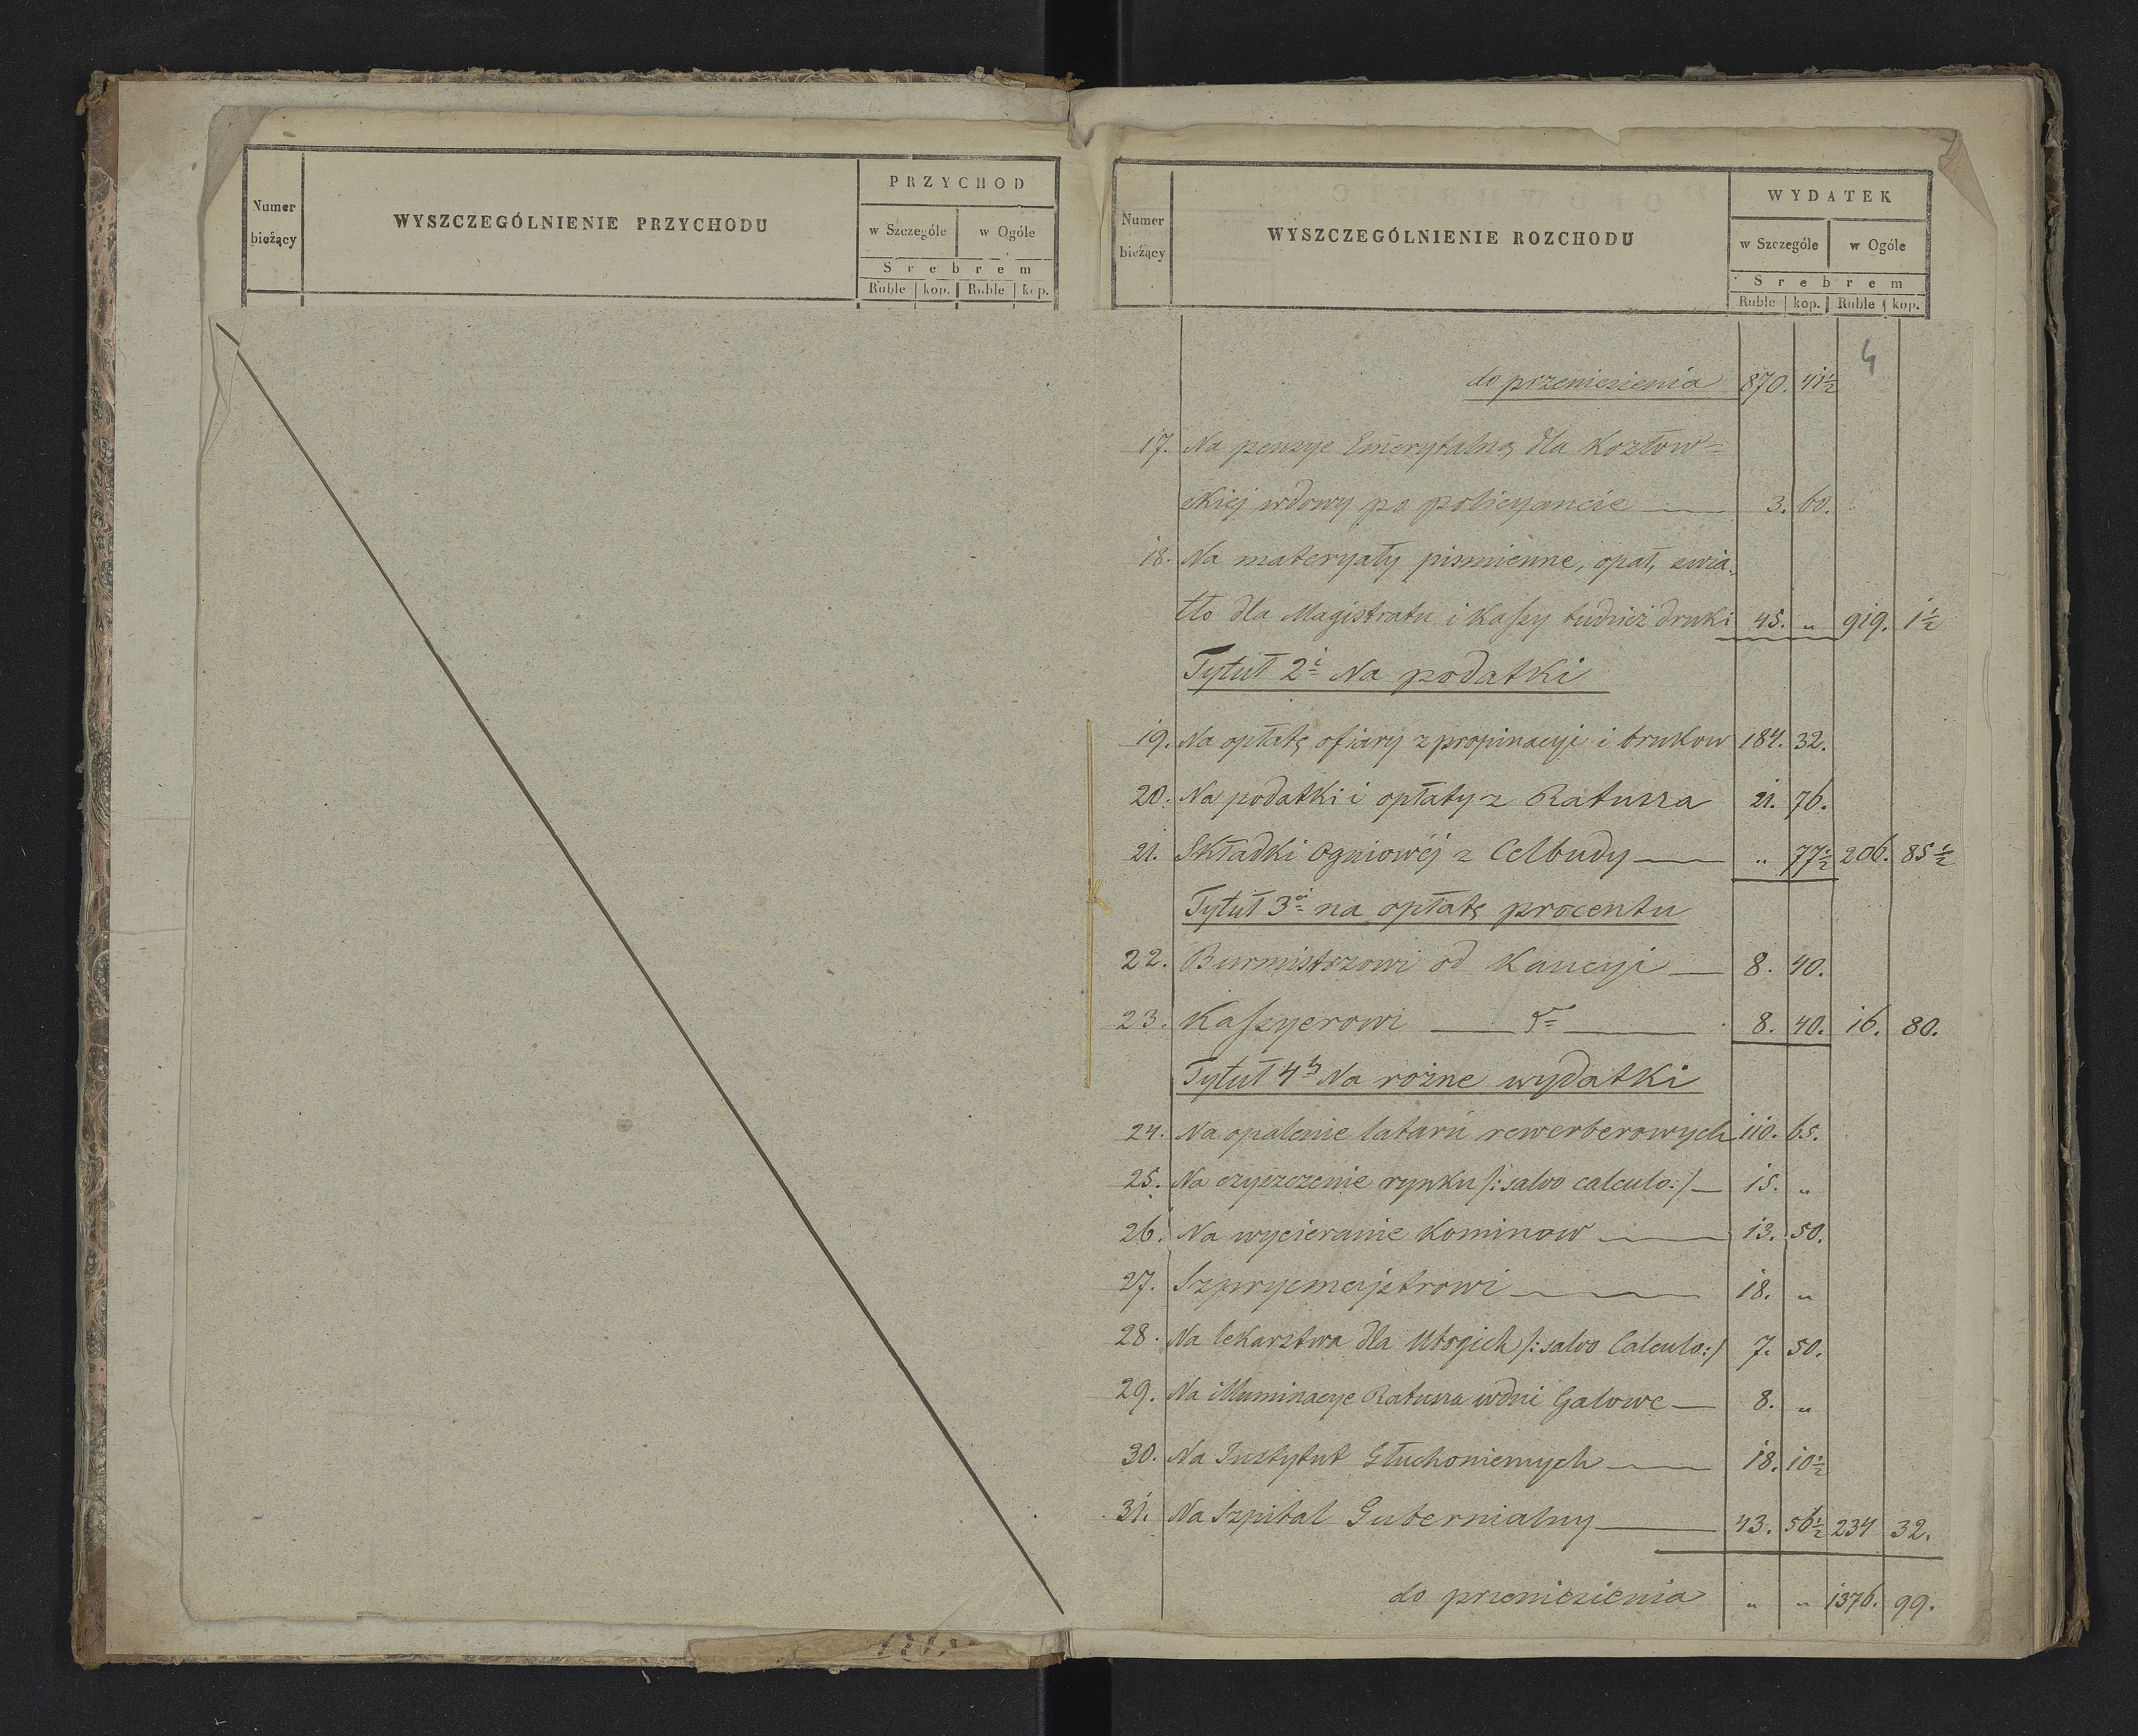 Numer bieżący
WYSZCZEGÓLNIENIE PRZYCHODU
PRZYCHOD
w Szczególe w Ogóle
Srebrem
Ruble kop. Ruble kop.
Numer bieżący
WYSZCZEGÓLNIENIE ROZCHODU
WYDATEK
w Szczególe w Ogóle
Srebrem
Ruble kop. Ruble kop.
4
do przeniesienia 870. 41½
17. Na pensye Emerytalną dla Kozłow=
skiej wdowy po policyancie 3. 60.
18. Na materyały pismienne, opał, swia„
tło dla Magistratu i Kassy tudzież druki 45. „ 919. 1½
Tytuł 2i Na podatki
19. Na opłatę ofiary z propinacyi i brukow 184. 32.
20. Na podatki i opłaty z Ratusza 21. 76.
21. Składki Ogniowéj z Celbudy „ 77½ 206. 85½
Tytuł 3ci na opłatę procentu
22. Burmistrzowi od Kaucyi 8. 40.
23. Kassyerowi 8. 40. 16. 80.
Tytuł 4ty Na rożne wydatki
24. Na opalenie latarń rewerberowych 110. 65.
25. Na czyszczenie rynku /: salvo calculo :/ 15. „
26. Na wycieranie Kominow 13. 50.
27. Szprycmajstrowi 18. „
28. Na lekarstwa dla Ubogich /: salvo Calculo :/ 7. 50.
29. Na illuminacye Ratusza w dni Galowe 8. „
30. Na Instytut Głuchoniemych 18. 10½
31. Na Szpital Gubernialny 43. 56½ 234 32.
do przeniesienia „ „ 1376. 99.